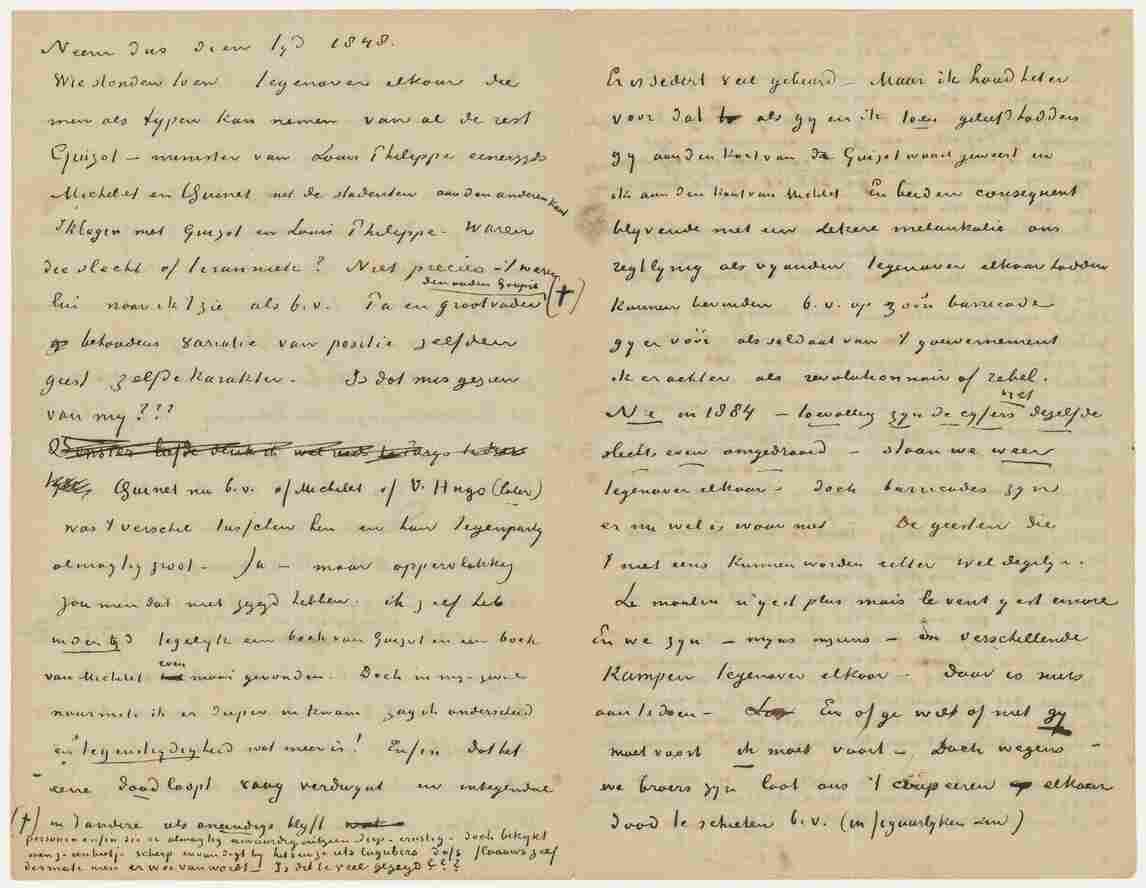 Neem dus dien tyd 1848.
Wie stonden toen tegenover elkaar die
men als typen kan nemen van al de rest
Guizot – minister van Louis Philippe eenerzyds
Michelet en Quinet met de studenten aan den anderen kant
Ik begin met Guizot en Louis Philippe – Waren
die slecht of tiranniek? Niet precies – 't waren
den ouden Goupil
lui naar ik 't zie als b.v. Pa en grootvader (†)
behoudens variatie van positie zelfden
geest zelfde karakter. Is dat misgezien
van my???
Quinet nu b.v. of Michelet of V. Hugo (later)
was 't verschil tusschen hen en hun tegenparty
almagtig groot. Ja – maar oppervlakkig
zou men dat niet gezegd hebben. ik zelf heb
indertyd tegelyk een boek van Guizot en een boek
even
van Michelet mooi gevonden. Doch in my –
naarmate ik er dieper in kwam zag ik onderscheid
en tegenstrydigheid wat meer is! Enfin dat het
eene dood loopt vaag verdwynt en integendeel
(†) in 't andere als oneindigs blyft
personen enfin die er almagtig eerwaardig uitzien diep – ernstig – doch bekykt
men ze een beetje scherp en van digt by hebben ze iets lugubers dofs flaauws zelf
dermate men er wee van wordt – Is dit te veel gezegd???
Er is sedert veel gebeurd – Maar ik houd het er
voor dat als gy en ik toen geleefd hadden
gy aan den kant van Guizot waart geweest en
ik aan den kant van Michelet En beiden consequent
blyvende met een zekere melankolie ons
regtlynig als vyanden tegenover elkaar hadden
kunnen bevinden b.v. op zoo'n barricade
gy er vóór als soldaat van 't gouvernement
ik er achter als revolutionnair of rebel.
net
Nu in 1884 – toevallig zyn de cyfers dezelfde
slechts even omgedraaid – staan we weer
tegenover elkaar. doch barricades zyn
er nu wel is waar niet De geesten die
't niet eens kunnen worden echter wel degelyk.
Le moulin n'y est plus mais le vent y est encore
En we zyn – myns inziens – in verschillende
Kampen tegenover elkaar – Daar is niets
aan te doen – En of ge wilt of niet gy
moet voort ik moet voort – Doch wegens –
we broers zyn laat ons 't elkaar
dood te schieten b.v. (in figuurlyken zin)